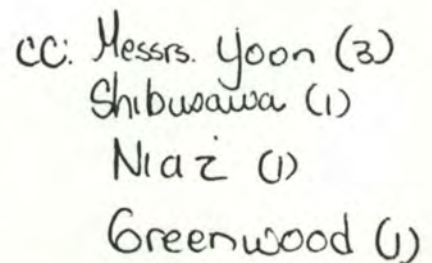 cc: Messrs. Yoon (3)
Shibusawa (1)
Niaz (1)
Greenwood (1)